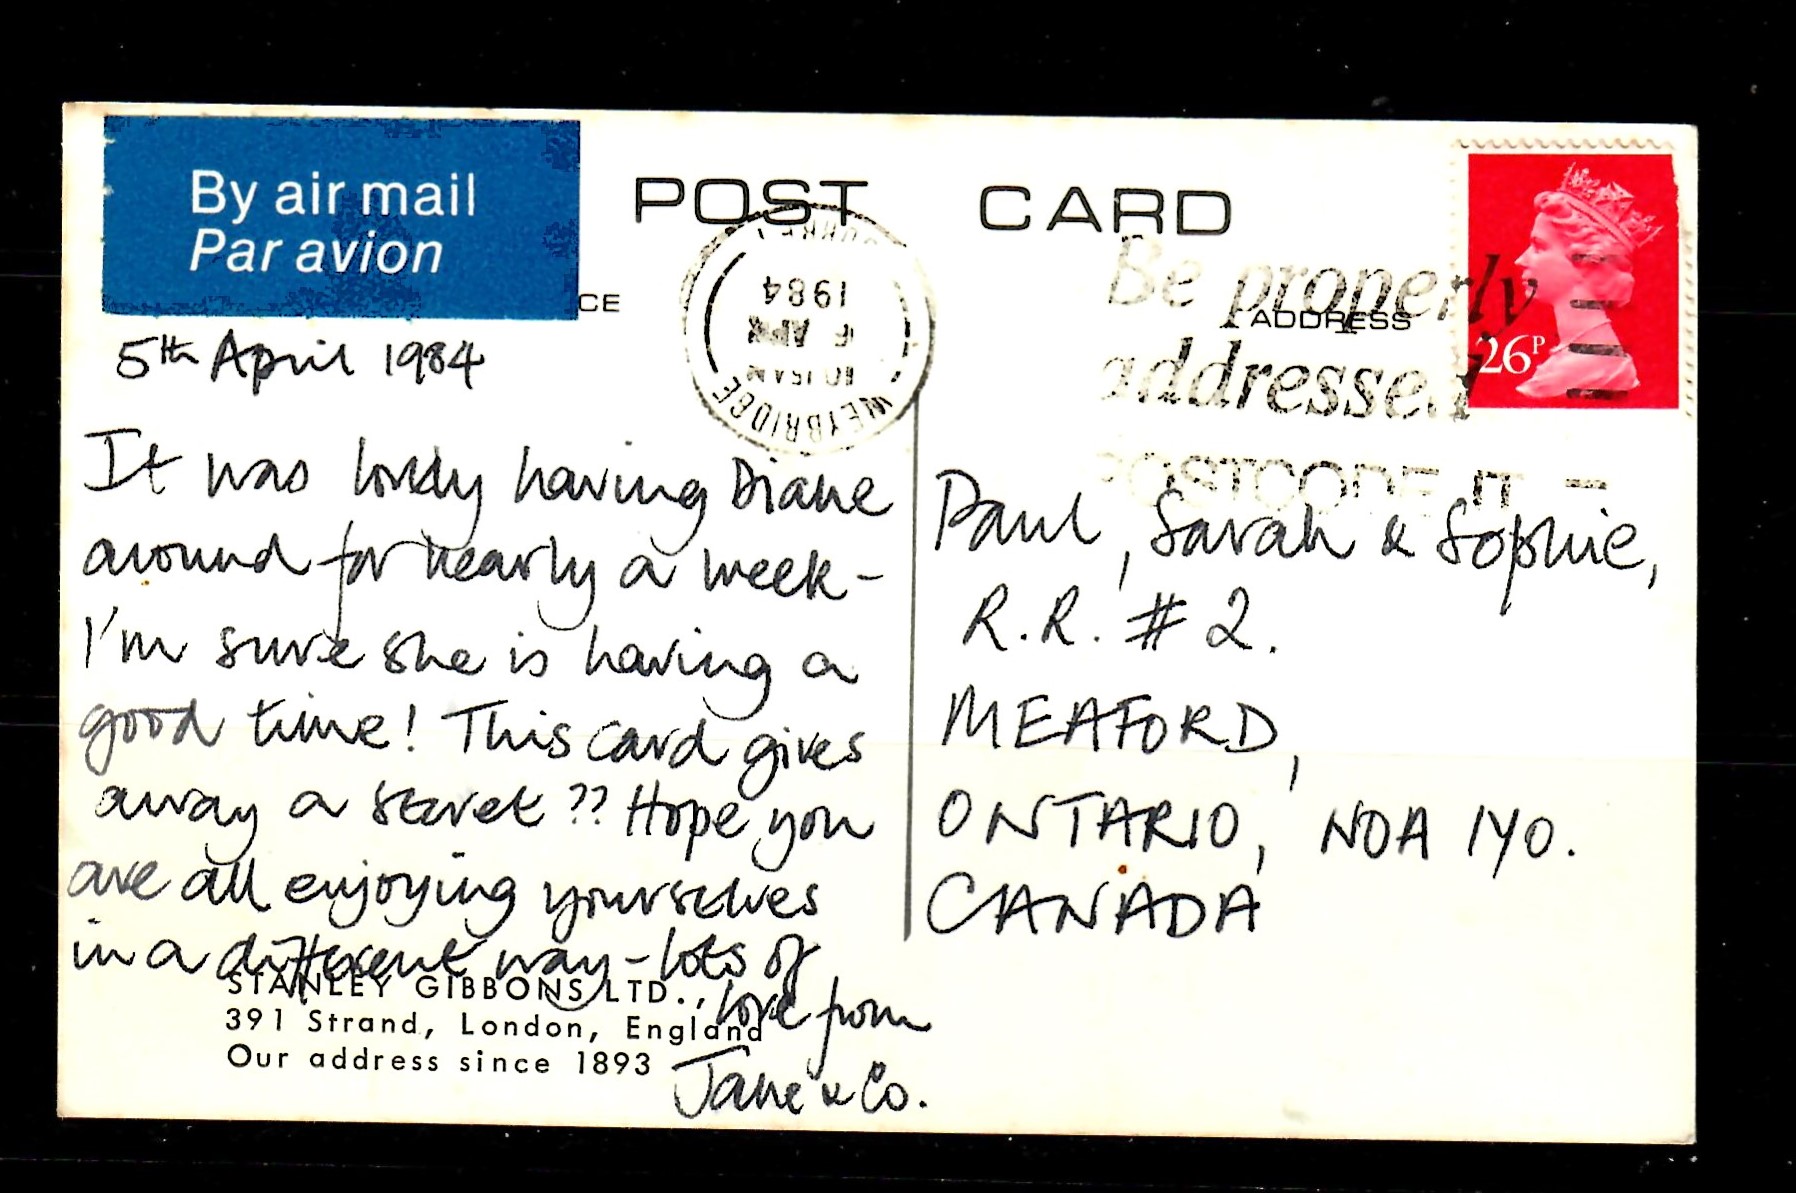 By air mail
Par avion
POST CARD
CE
ADDRESS
26P
WEYBRIDGE
10 15 AM
6 APR
1984
Be properly
addressed
POSTCODE IT
5th April 1984
It was lovely having Diane
around for nearly a week -
I'm sure she is having a
good time! This card gives
away a secret ?? Hope you
are all enjoying yourselves
in a different way - lots of
love from
Jane & Co.
Paul, Sarah & Sophie,
R.R. # 2.
MEAFORD,
ONTARIO, NOA 1YO.
CANADA
STANLEY GIBBONS LTD.,
391 Strand, London, England
Our address since 1893